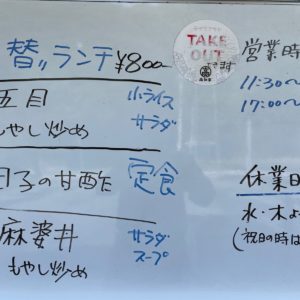 替ランチ ¥800
五目
もやし炒め
小ライス
サラダ
子の甘酢 定食
麻婆丼
もやし炒め
サラダ
スープ
TAKE
OUT
できます
営業時
11:30～
17:00～
休業日
水・木よ
(祝日の時は